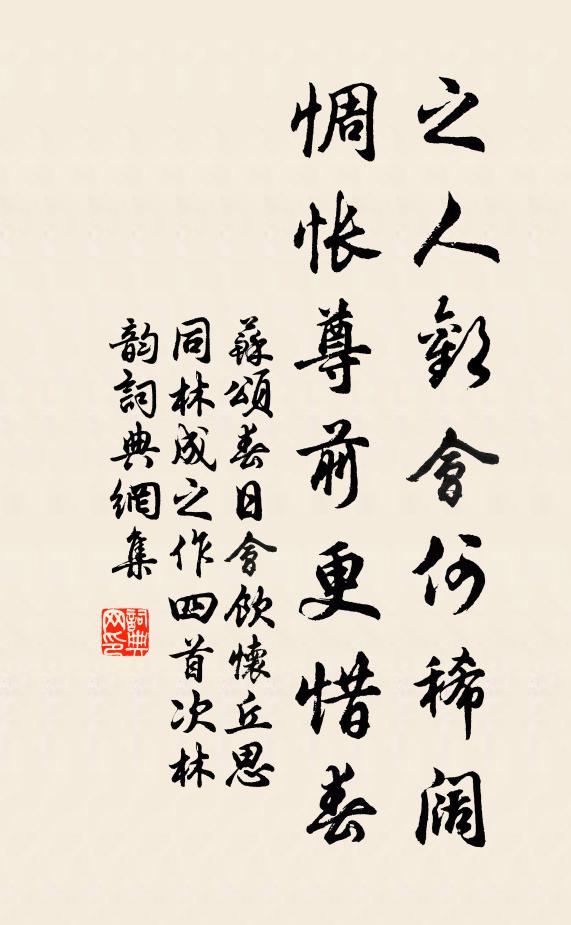 之人歡會何稀闊
惆悵尊前更惜春
蘇頌春日會飲懷丘思
同林成之作四首次林
韵詞典網集
詞典网印